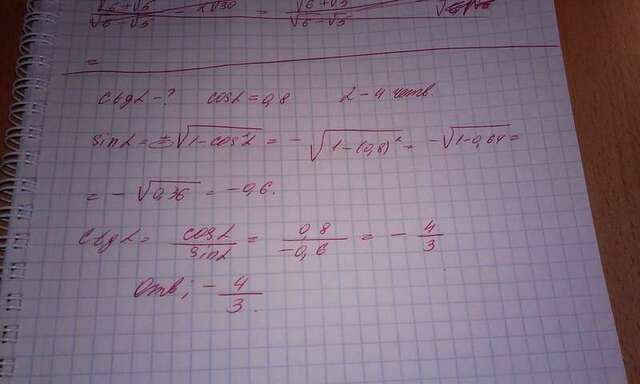 √6+√5 / √6−√5 = √6+√5 / √6−√5
=
ctgα − ? cosα = 0,8 α − 4 четв.
sinα = ±√1−cos²α = −√1−(0,8)² = −√1−0,64 =
= −√0,36 = −0,6.
ctgα = cosα / sinα = 0,8 / −0,6 = − 4/3
Отв; − 4/3.